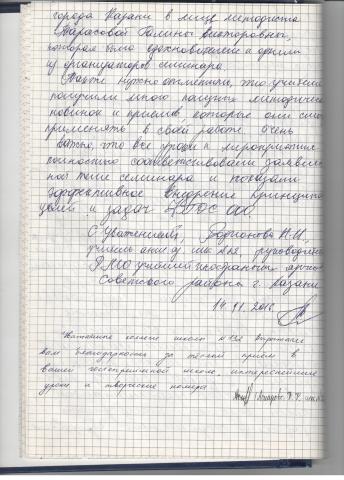 города Казани в лице методиста
Тарасовой Галины Викторовны,
которая была вдохновителем и одним
из организаторов семинара.
Также нужно отметить, что учителя
получили много полезных методических
новинок и приёмов, которые они смогут
применять в своей работе. Очень
важно, что все уроки и мероприятия
полностью соответствовали заявлен-
ной теме семинара и показали
эффективное внедрение принципов
целей и задач ФГОС ОО.
С уважением, Н.И.,
учитель англ. яз шк. руководитель
РМО учителей иностранных языков
Советского района г. Казани
14.11.2016
коллектив школы выражает
вам благодарность за тёплый приём в
вашей гостеприимной школе, интереснейшие
уроки и творческие номера